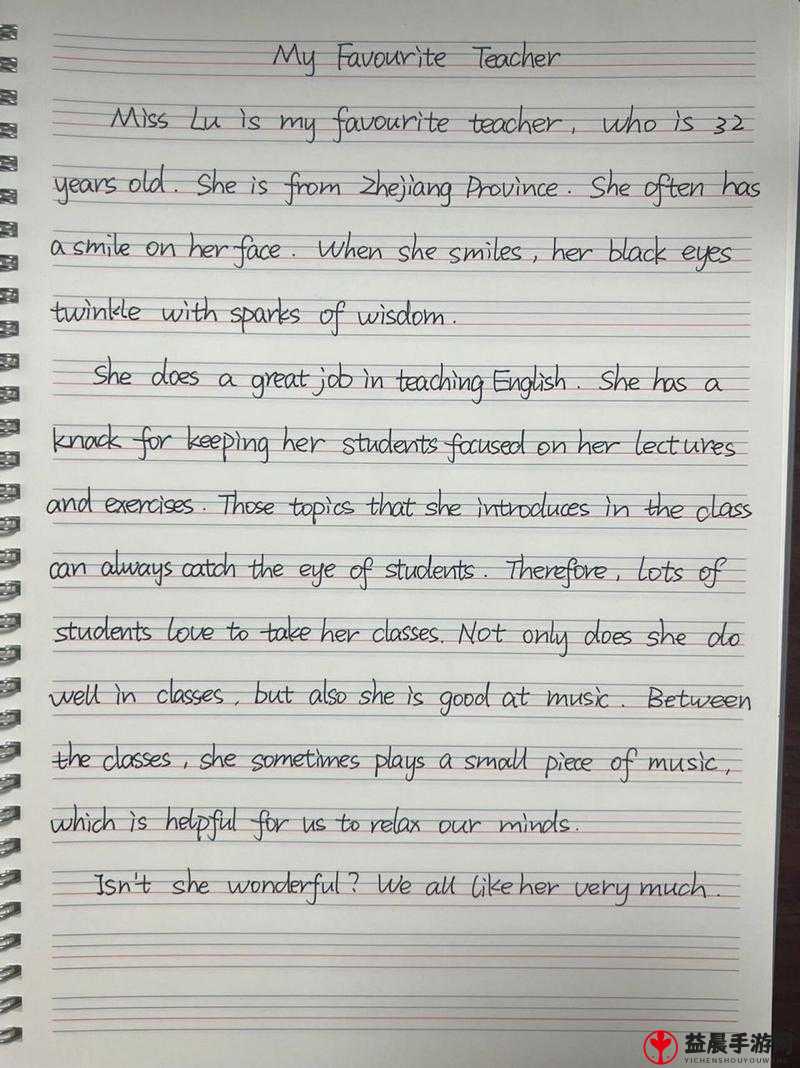 My Favourite Teacher
Miss Lu is my favourite teacher, who is 32
years old. She is from Zhejiang Province. She often has
a smile on her face. When she smiles, her black eyes
twinkle with sparks of wisdom.
She does a great job in teaching English. She has a
knack for keeping her students focused on her lectures
and exercises. Those topics that she introduces in the class
can always catch the eye of students. Therefore, lots of
students love to take her classes. Not only does she do
well in classes, but also she is good at music. Between
the classes, she sometimes plays a small piece of music,
which is helpful for us to relax our minds.
Isn't she wonderful? We all like her very much.
益晨手游网
YICHENSHOUYOUWANG